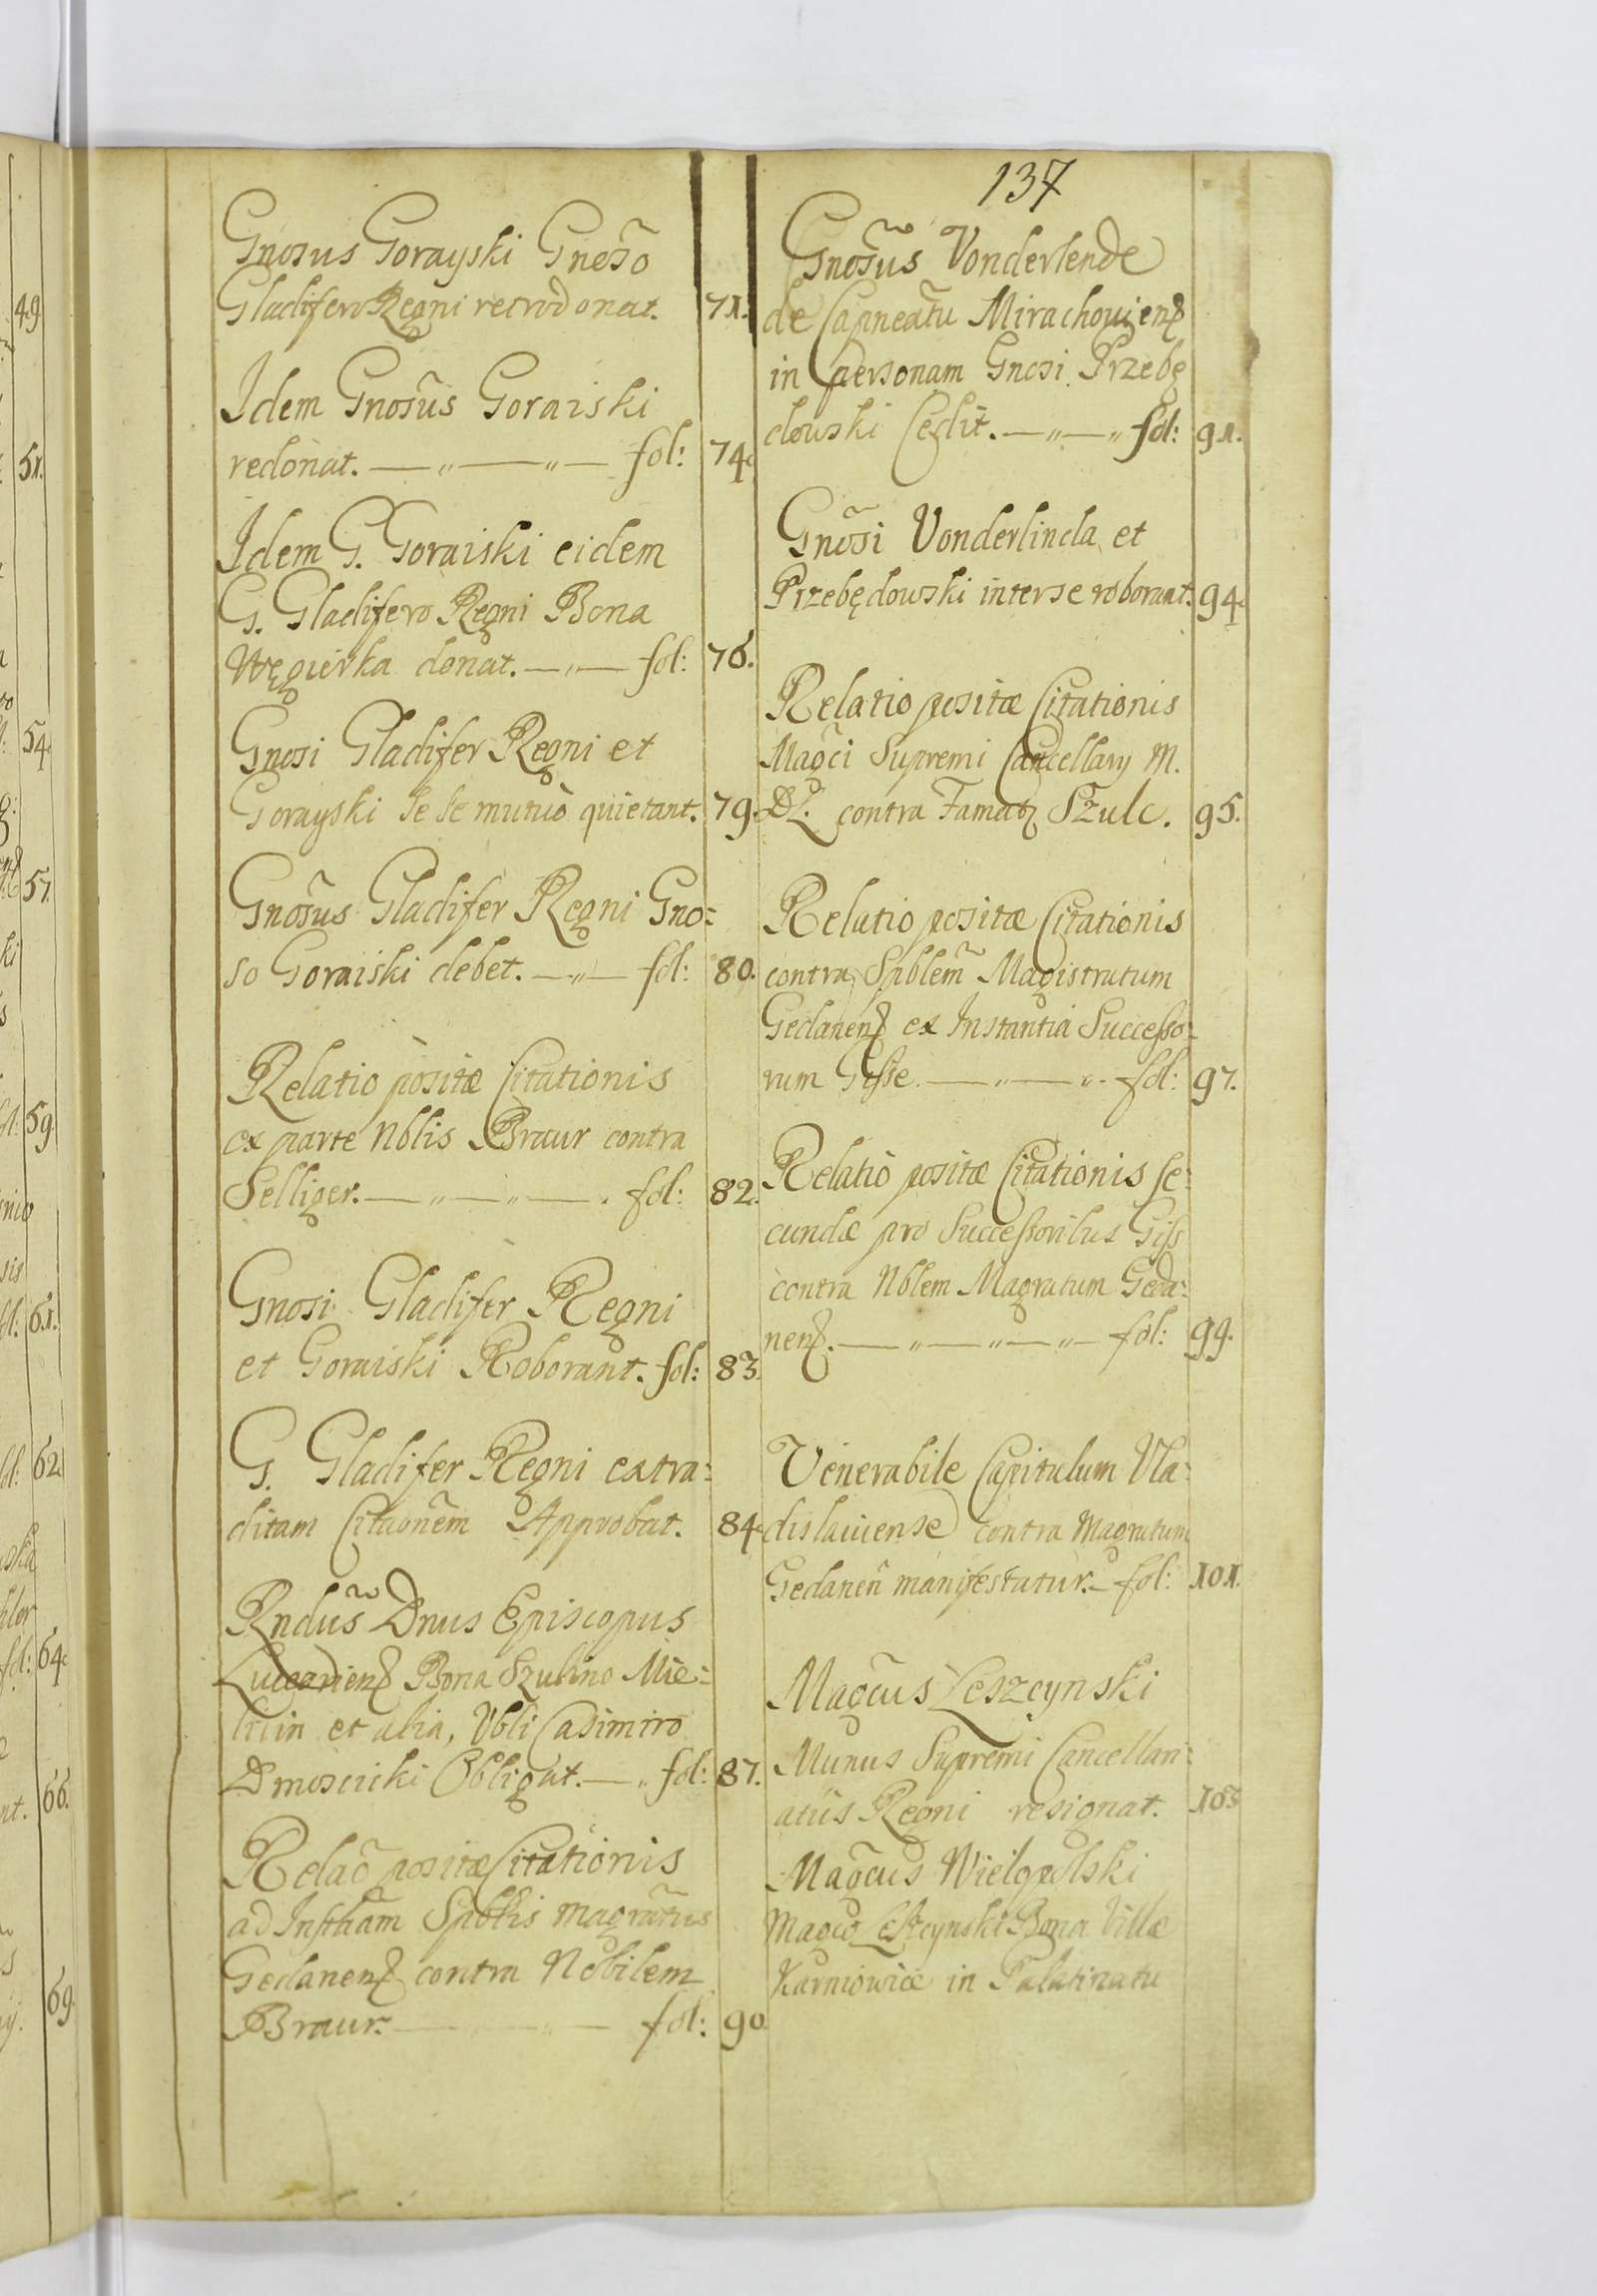 137
Gnosus Gorayski Gnoso
Gladifero Regni retrodonat. 71.
Idem Gnosus Goraiski
redonat. — „ — „ — fol: 74.
Idem G. Goraiski eidem
G. Gladifero Regni Bona
Węgierka donat. — „ — fol: 76.
Gnosi Gladifer Regni et
Gorayski se se mutuò quietant. 79.
Gnosus Gladifer Regni Gno:
so Goraiski debet. — „ — fol: 80.
Relatio positæ Citationis
ex parte Nblis Braur contra
Selliger. — „ — „ — . fol: 82.
Gnosi Gladifer Regni
et Goraiski Roborant. fol: 83.
G. Gladifer Regni extra:
ditam Citaonem Approbat. 84.
Rndus Dnus Episcopus
Bona Szulino Mie:
et alia, Casimiro
Dmosicki Obligat. — „ fol: 87.
Relaõ positæ Citationis
ad Instham Spblis magratus
Gedanens contra Nobilem
Braur. — „ — fol: 90.
Gnosus Vonderlende
de Capneatu Mirachowiens
in personam Gnosi Przebę
dowski Cedit. — „ — „ fol: 91.
Gnosi Vonderlinda et
Przebędowski inter se roborant. 94.
Relatio positæ Citationis
Magci Supremi Cancellarij M.
DL. contra Famatq Szulc. 95.
Relatio positæ Citationis
contra Spblem Magistratum
Gedanens ex Instantia Successo:
rum Gisse. — „ — „ . fol: 97.
Relatio positæ Citationis se:
cundæ pro Successoribus Giss
contra Nblem Magratum Geda:
nens. — „ — „ — „ — fol: 99.
Venerabile Capitulum Vla:
dislaviense contra Magratum
Gedanen manifestatur. — fol: 101.
Magcus Leszcynski
Munus Supremi Cancellari:
atus Regni resignat. 103
Magcus Wielopolski
Magco Leszcynski Bona Villæ
Karniowice in Palatinatu